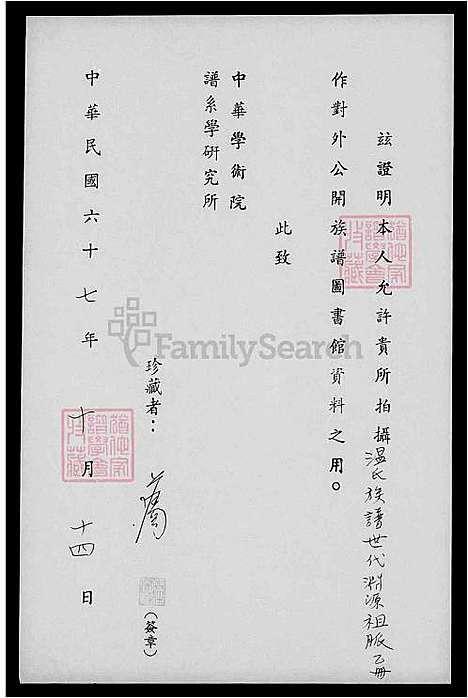 玆證明本人允許貴所拍攝温氏族譜世代淵源祖脈乙冊
作對外公開族譜圖書館資料之用。
此致
中華學術院
譜系學研究所
珍藏者：
(簽章)
中華民國六十七年十月十四日
FamilySearch